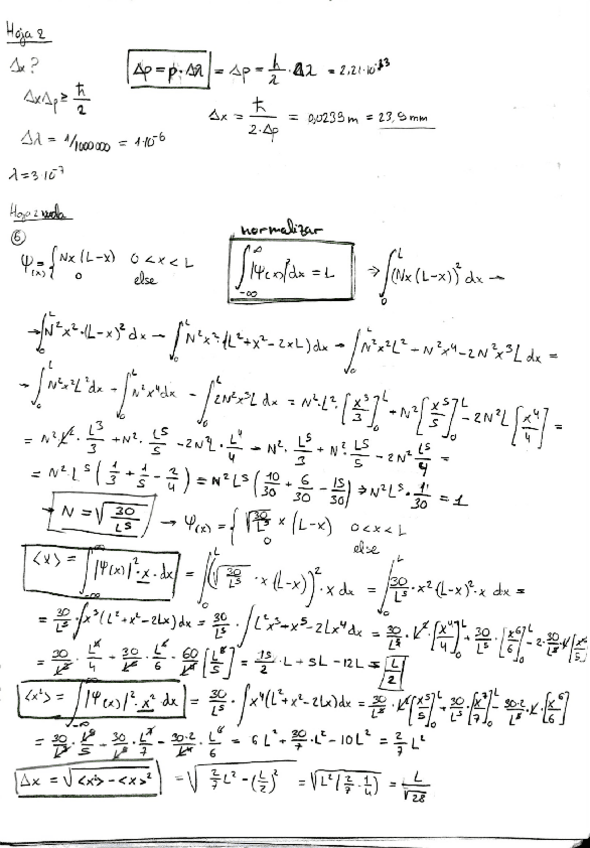 Hoja 2
Δx?
Δp = p·Δλ = Δp = h/λ · Δλ = 2,21·10
ΔxΔp ≥ ħ/2
Δx = ħ/(2·Δp) = 0,0239 m = 23,9 mm
Δλ = 1/1000000 = 1·10^-6
λ = 3·10^-7
Hoja 2
⑥
normalizar
Ψ(x) = { Nx(L-x) 0<x<L
0 else
∫_{-∞}^{∞} |Ψ(x)|² dx = 1 → ∫_0^L (Nx(L-x))² dx →
→ ∫_0^L N²x²·(L-x)² dx → ∫_0^L N²x²·(L²+x²-2xL) dx → ∫_0^L N²x²L² + N²x⁴ - 2N²x³L dx =
→ ∫_0^L N²x²L² dx + ∫_0^L N²x⁴ dx - ∫_0^L 2N²x³L dx = N²·L²·[x³/3]_0^L + N²[x⁵/5]_0^L - 2N²L[x⁴/4] =
= N²L²·L³/3 + N²·L⁵/5 - 2N²L·L⁴/4 → N²·L⁵/3 + N²·L⁵/5 - 2N² L⁵/4 =
= N²·L⁵(1/3 + 1/5 - 2/4) = N²L⁵(10/30 + 6/30 - 15/30) → N²L⁵·1/30 = 1
→ N = √(30/L⁵) → Ψ(x) = { √(30/L⁵) x(L-x) 0<x<L
0 else
<x> = ∫_{-∞}^{∞} |Ψ(x)|²·x·dx = ∫_0^L (√(30/L⁵)·x(L-x))²·x dx = ∫_0^L 30/L⁵·x²(L-x)²·x dx =
= 30/L⁵ ∫x³(L²+x²-2Lx)dx = 30/L⁵·∫L²x³+x⁵-2Lx⁴dx = 30/L⁵·L²·[x⁴/4]_0^L + 30/L⁵[x⁶/6]_0^L - 2·30/L⁵·L[x⁵/5]
= 30/L⁵·L⁶/4 + 30/L⁵·L⁶/6 - 60/L⁵[L⁶/5] = 15/2·L + 5L - 12L = L/2
<x²> = ∫_{-∞}^{∞} |Ψ(x)|²·x² dx = 30/L⁵·∫x⁴(L²+x²-2Lx)dx = 30/L⁵·L²[x⁵/5]_0^L + 30/L⁵[x⁷/7]_0^L - 30·2/L⁵·L·[x⁶/6]
= 30/L³·L⁵/5 + 30/L⁵·L⁷/7 - 30·2/L⁴·L⁶/6 = 6L² + 30/7·L² - 10L² = 2/7 L²
Δx = √(<x²> - <x>²) = √(2/7 L² - (L/2)²) = √(L²(2/7·1/4)) = L/√28